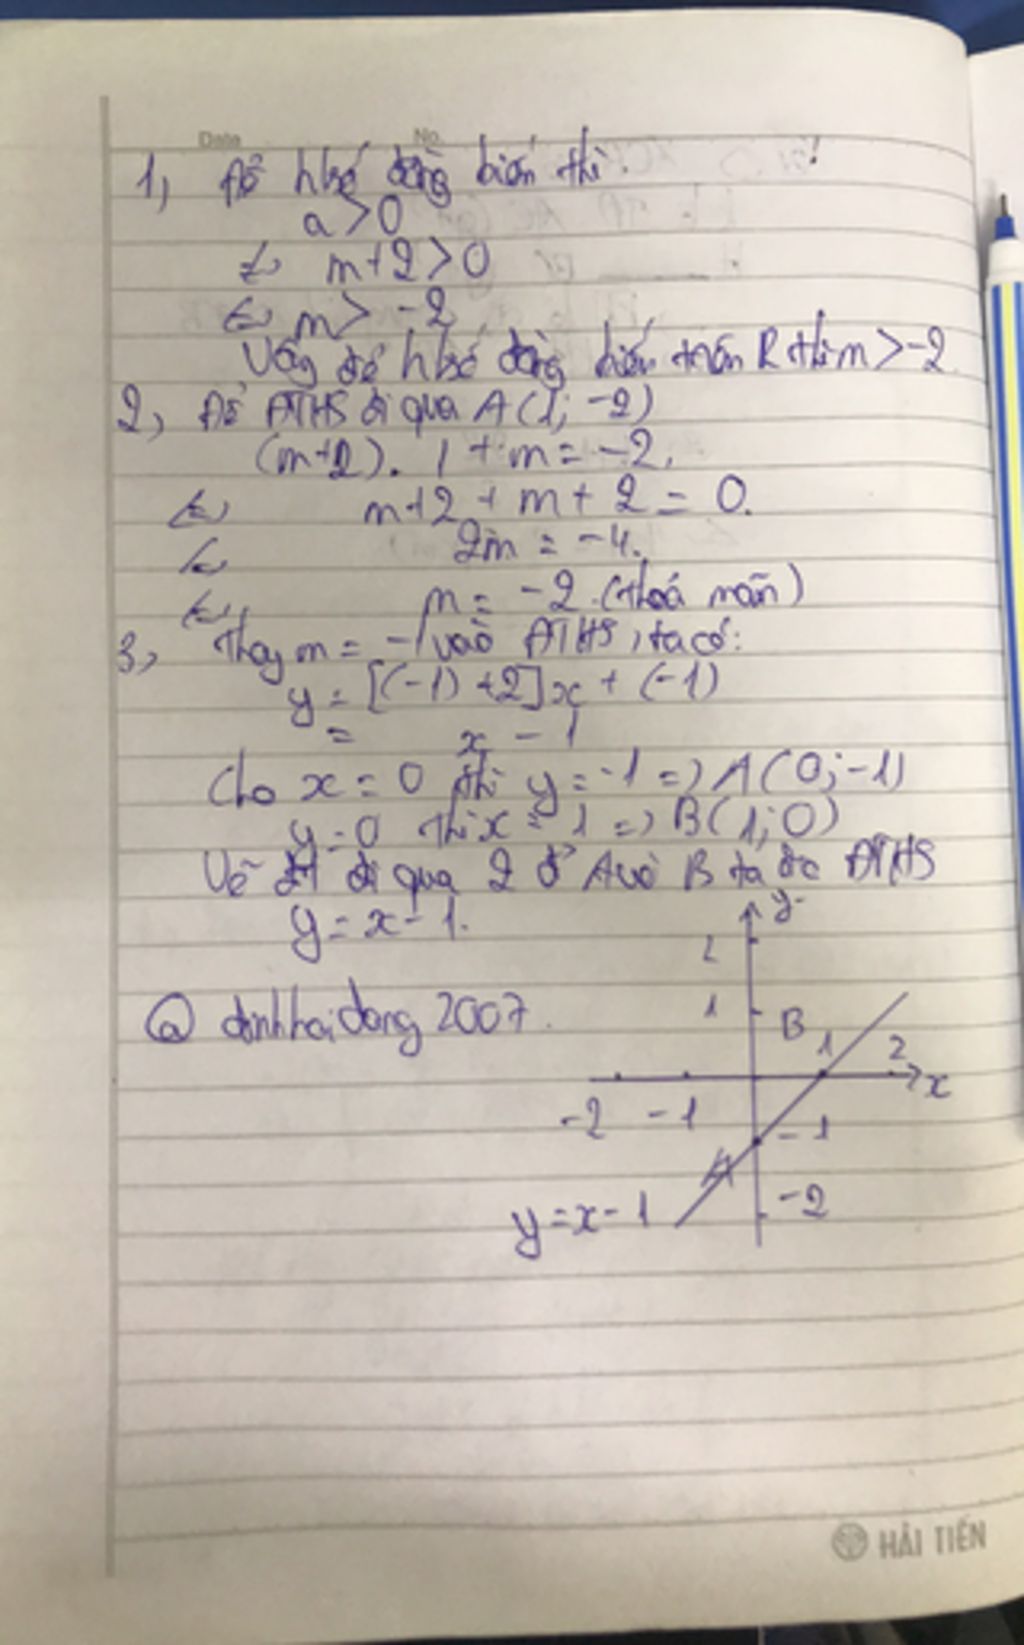 Date No
1, Để hsố đồng biến thì:
a > 0
⇔ m+2 > 0
⇔ m > -2
Vậy để hsố đồng biến trên R thì m > -2
2, Để ĐTHS đi qua A(1; -2)
(m+2). 1 + m = -2.
⇔ m+2 + m + 2 = 0.
⇔ 2m = -4.
⇔ m = -2 (thoả mãn)
3, Thay m = -1 vào ĐTHS, ta có:
y = [(-1) +2]x + (-1)
= x - 1
Cho x = 0 thì y = -1 => A(0; -1)
y = 0 thì x = 1 => B(1; 0)
Vẽ đt đi qua 2 đ' A và B ta đc ĐTHS
y = x - 1.
@ dinhhaidang2007.
y
2
1 B 1 2
x
-2 -1
-1
A
-2
y = x - 1
HẢI TIẾN